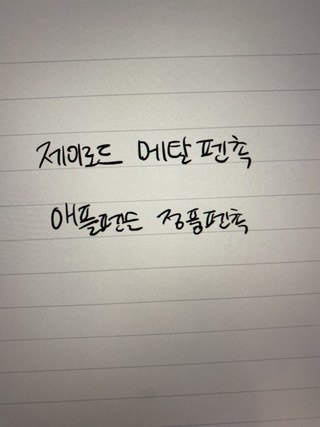 제이로드 메탈 펜촉
애플펜슬 정품펜촉